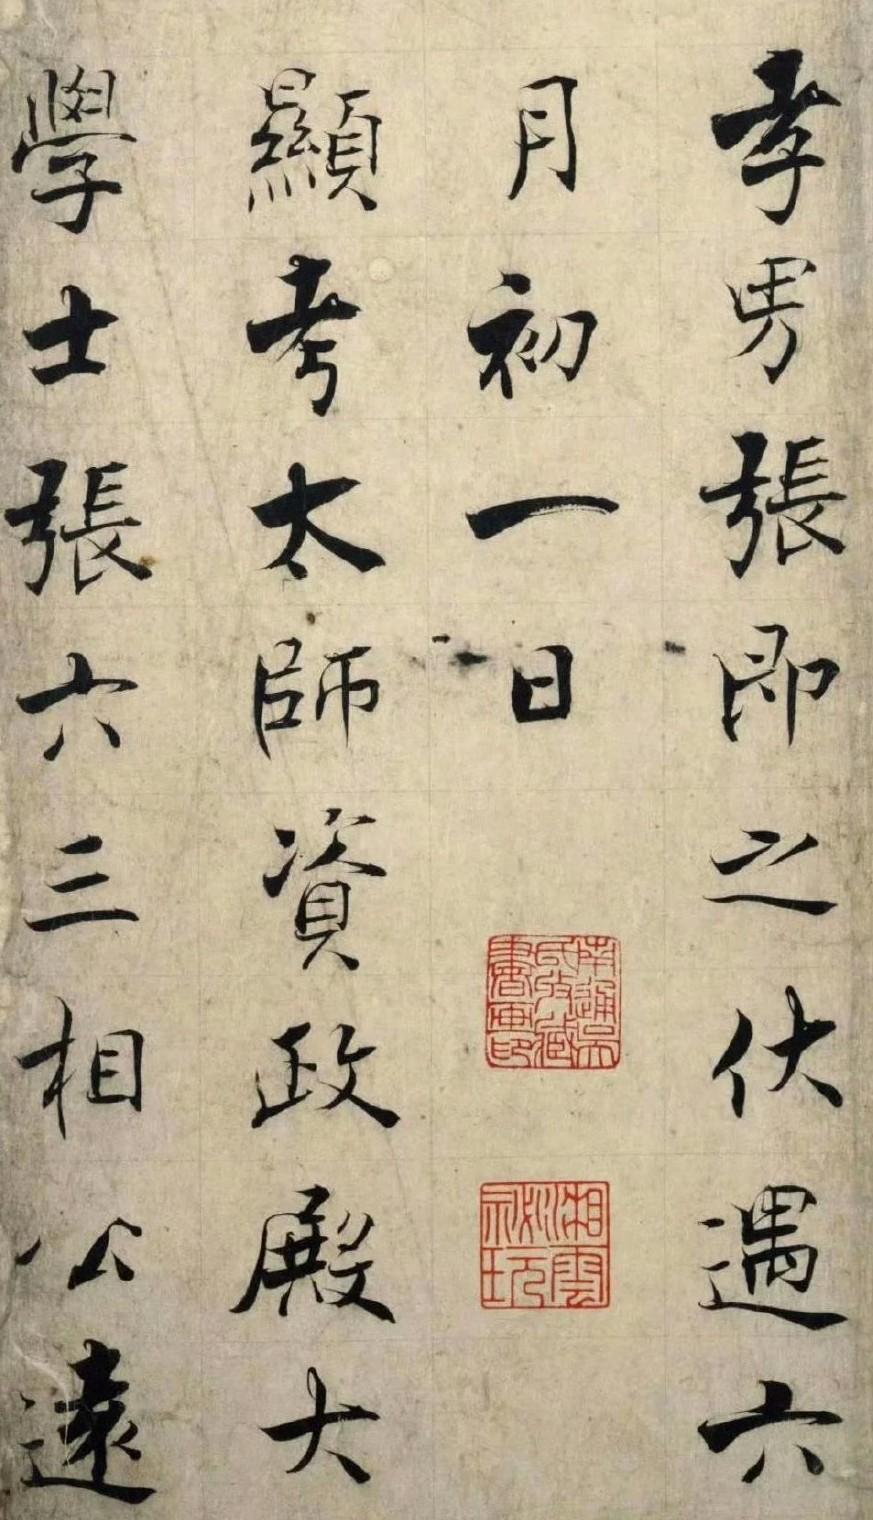 孝男張即之伏遇六
月初一日
顯考太師資政殿大
學士張六三相公遠